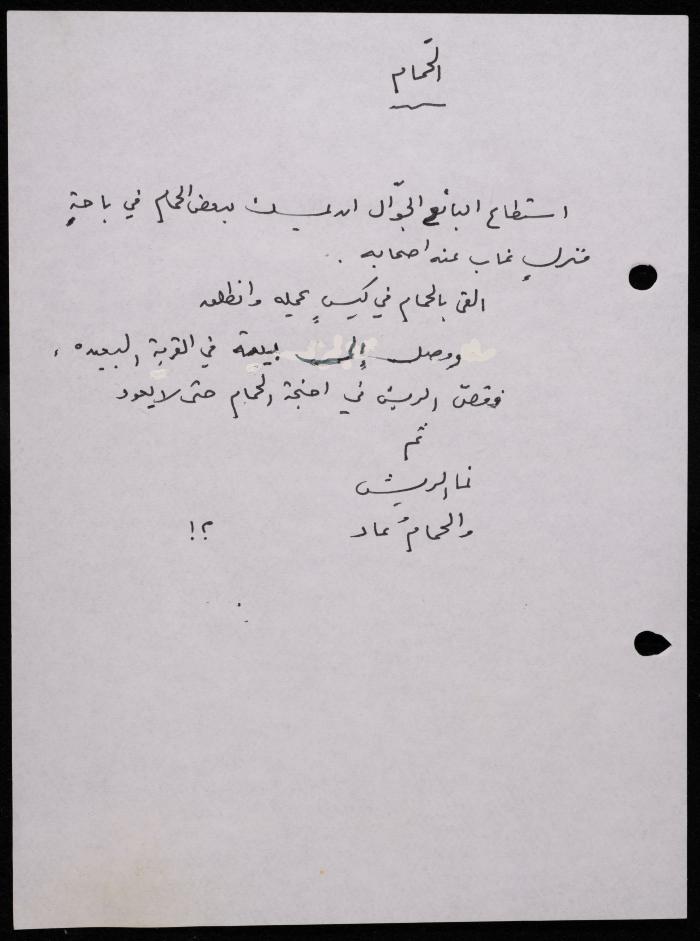 الحمام
استطاع البائع الجوّال ان يمسك ببعض الحمام في باحةِ
منزلٍ غاب عنه اصحابه .
القى بالحمام في كيسٍ يحمله وانطلق
ووصل إلى بيته في القرية البعيده ،
فقصّ الريش في اجنحة الحمام حتى لا يعود
ثم
نما الريش
والحمامُ عاد ؟!